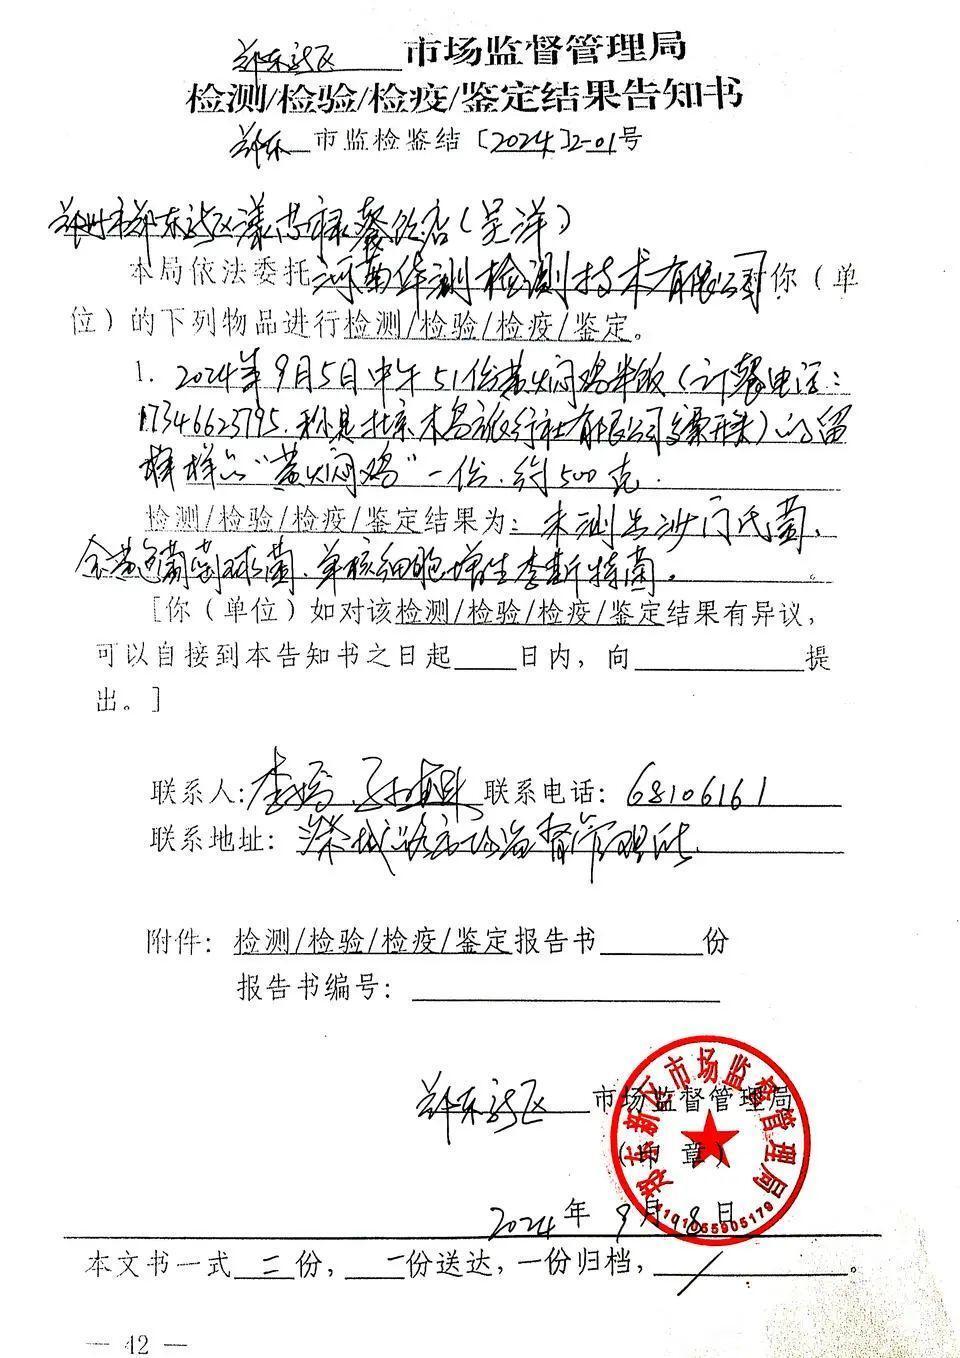 郑东新区市场监督管理局
检测/检验/检疫/鉴定结果告知书
郑东市监检鉴结〔2024〕2-01号
郑州市郑东新区漾禄餐饮店(吴洋)
本局依法委托河南华测检测技术有限公司对你(单
位)的下列物品进行检测/检验/检疫/鉴定。
1. 2024年9月5日中午51份黄焖鸡米饭(订餐电话:
17346623795.北京木鸟旅行社有限公司发票开头)的留
样样品"黄焖鸡"一份.约500克.
检测/检验/检疫/鉴定结果为:未测出沙门氏菌、
金黄色葡萄球菌、单核细胞增生李斯特菌。
[你(单位)如对该检测/检验/检疫/鉴定结果有异议,
可以自接到本告知书之日起____日内,向________提
出。]
联系人:李 联系电话:68106161
联系地址:市场监督管理所
附件:检测/检验/检疫/鉴定报告书____份
报告书编号:________
郑东新区市场监督管理局
(印章)
郑东新区市场监督管理局
4101055905179
2024年9月18日
本文书一式三份,一份送达,一份归档,/。
— 42 —